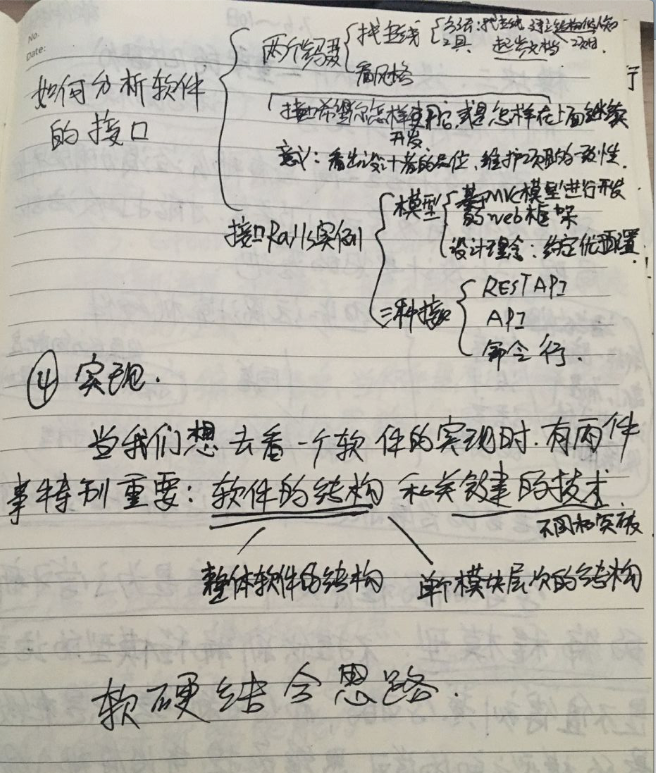 No.
Date:
两个步骤
找主线
方法：找主线
工具
看风格
如何分析软件
的接口
接口希望你怎样使用它，或是怎样在上面继续
开发.
意义：看出设计者的品位，维护项目的一致性.
接口Rails实例
模型
基于MVC模型进行开发
的web框架
设计理念：约定优于配置
三种接口
REST API
API
命令行.
④ 实现.
当我们想去看一个软件的实现时.有两件
事特别重要：软件的结构 和关键的技术.
不同和突破
整体软件的结构 单个模块层次的结构
软硬结合思路.